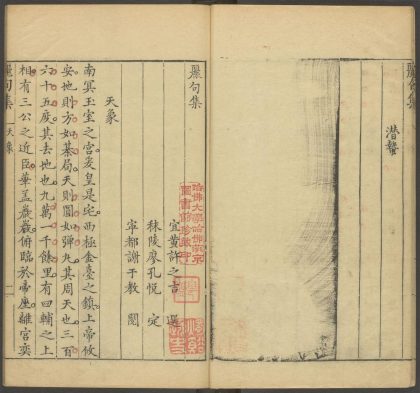 麗句集
潛蟄
麗句集
宜黃許之吉 選
秣陵廖孔悅 定
寧都謝于教 閱
哈佛大學哈佛燕京
圖書館珍藏印
天象
南冥玉室之宮爰皇是宅西極金臺之鎮上帝攸
安地則方如棊局天則圓如彈丸其周天也三百
六十五度其去地也九萬一千餘里有四輔之上
相有三公之近臣華蓋巖巖俯臨於帝座離宮奕
麗句集 天象 一